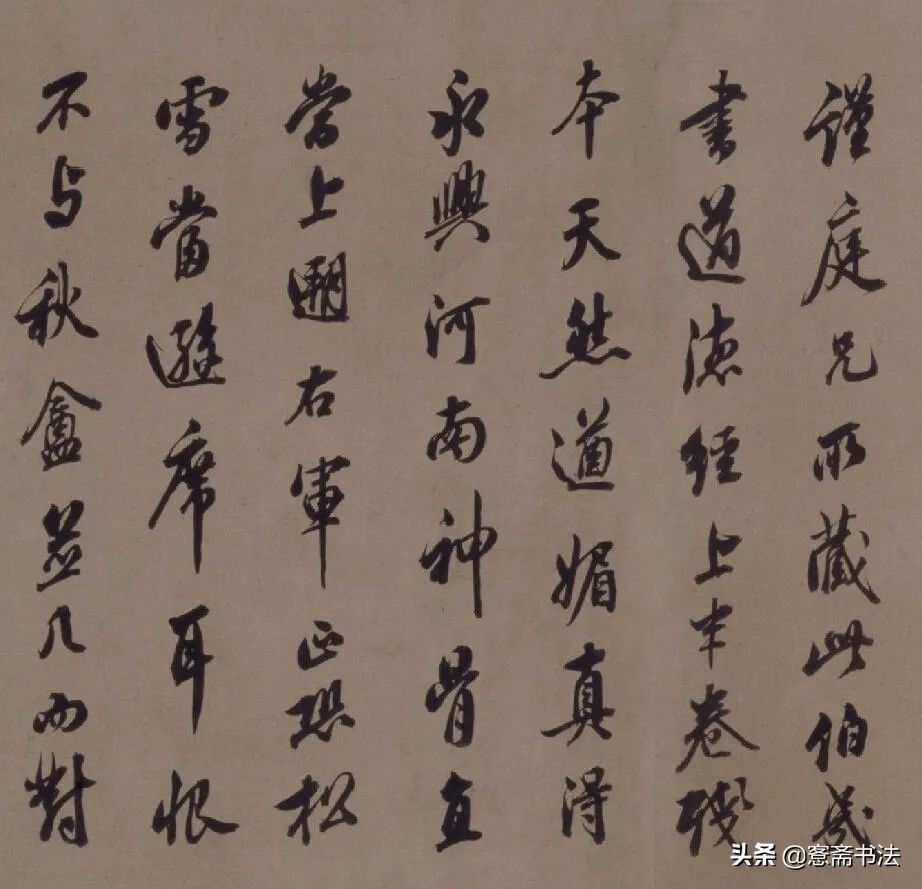 謹庭兄所藏此伯幾
書道德經上半卷殘
本天然遒媚真得
永興河南神骨直
當上遡右軍正恐松
雪當避席耳恨
不与秋盦並几而對
头条 @窓斋书法